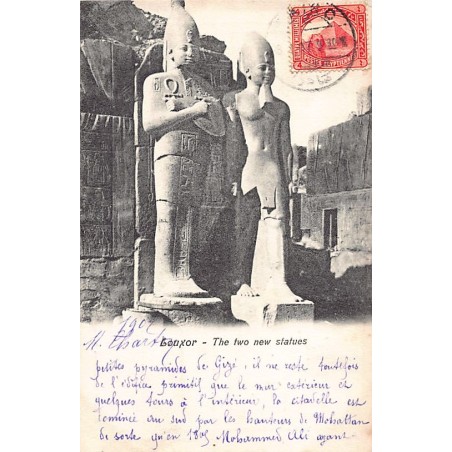 Louxor - The two new statues
petites pyramides de Gizé, il ne reste toutefois
de l'édifice primitif que le mur extérieur et
quelques tours à l'intérieur, la citadelle est
dominée au sud par les hauteurs de Mokattan
de sorte qu'en 1805 Mohammed Ali ayant